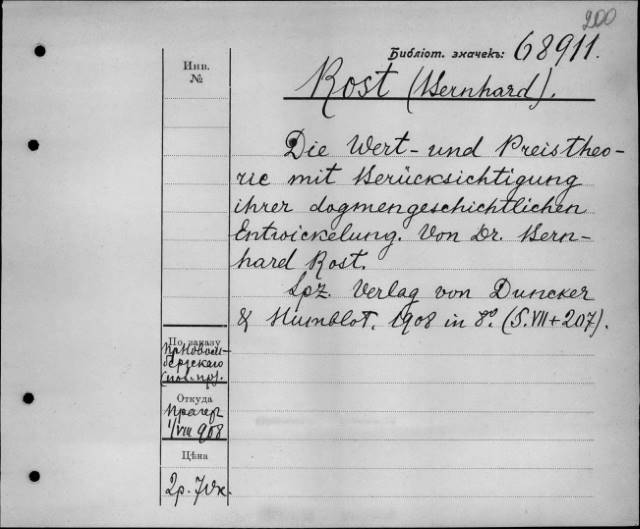 200
Библіот. значекъ: 68911.
Инв.
№
Rost (Bernhard).
Die Wert- und Preistheo-
rie mit Berücksichtigung
ihrer dogmengeschichtlichen
Entwickelung. Von Dr. Bern-
hard Rost.
Lpz. Verlag von Duncker
& Humblot. 1908 in 8º. (S. VII + 207).
По заказу
Откуда
Прагер
1/VIII 908
Цѣна
2р. 70к.